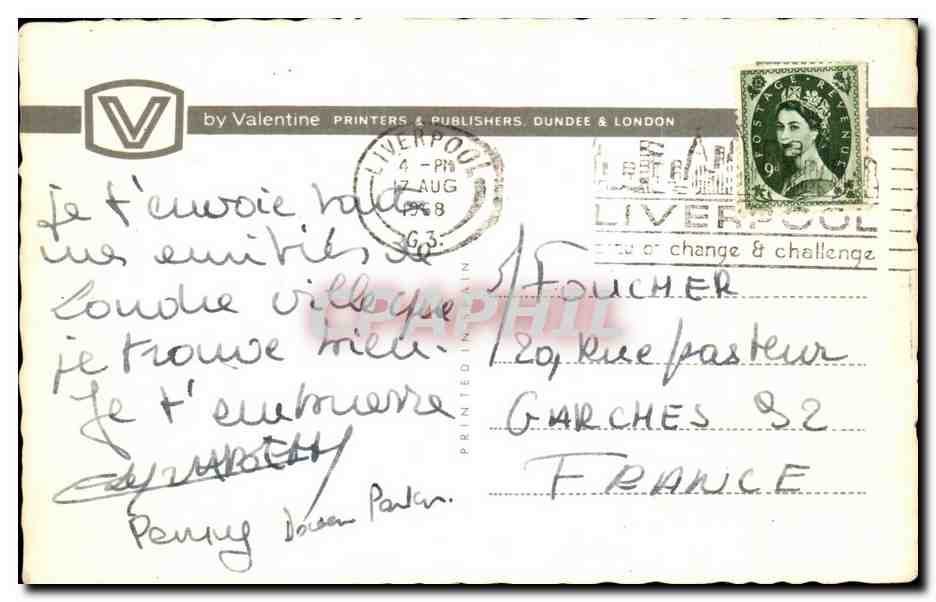 V
by Valentine PRINTERS & PUBLISHERS, DUNDEE & LONDON
POSTAGE REVENUE
9D
LIVERPOOL
4 - PM
17 AUG
1968
LIVERPOOL
of change & challenge
je t'envoie tout
mes amitiés de
Londre ville que
je trouve bien.
Je t'embrasse
Penny
PRINTED IN
FOUCHER
29, Rue pasteur
GARCHES 92
FRANCE
CPAPHIL